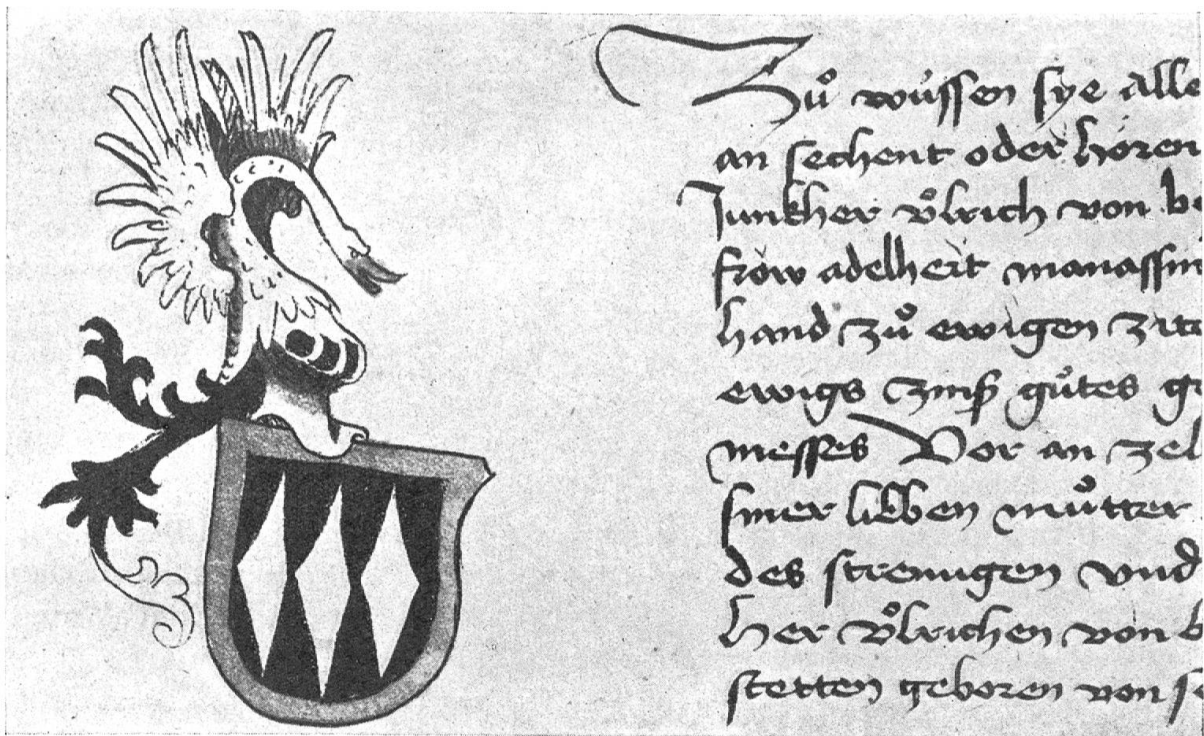 Zů wüssen sye alle
an sechent oder hören
Junkher v̊lrich von b
frow adelheit manassin
hand zů ewigen zit
ewigs zinß gůtes g
messes Vor an zel
siner lieben můtter
des strenngen vnd
her v̊lrichen von
stetten geboren von